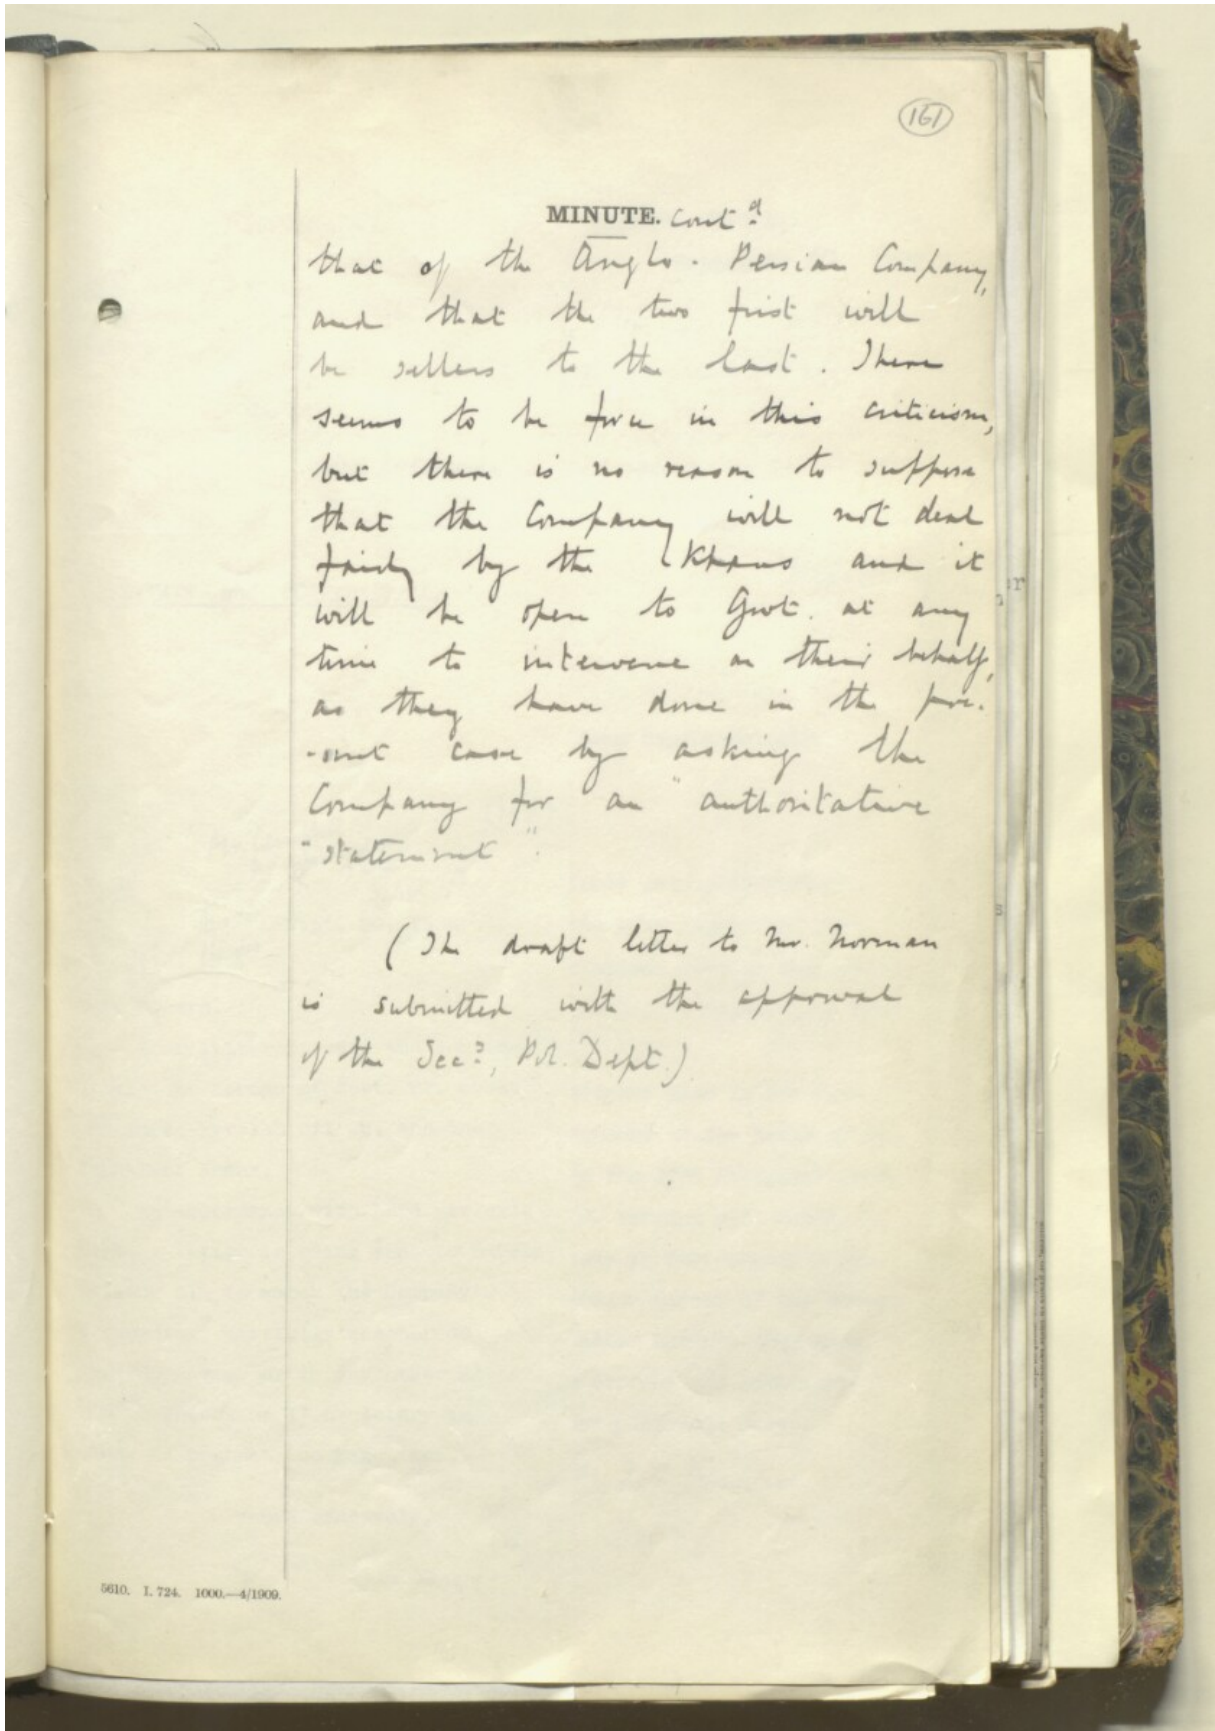 161
MINUTE. Cont.d
that of the Anglo-Persian Company,
and that the two first will
be sellers to the last. There
seems to be force in this criticism,
but there is no reason to suppose
that the Company will not deal
fairly by the Khans and it
will be open to Govt. at any
time to intervene on their behalf,
as they have done in the pre-
-sent case by asking the
Company for an "authoritative
"statement".
(The draft letter to Mr. Norman
is submitted with the approval
of the Secy, Pol. Dept.)
5610. I. 724. 1000.—4/1909.